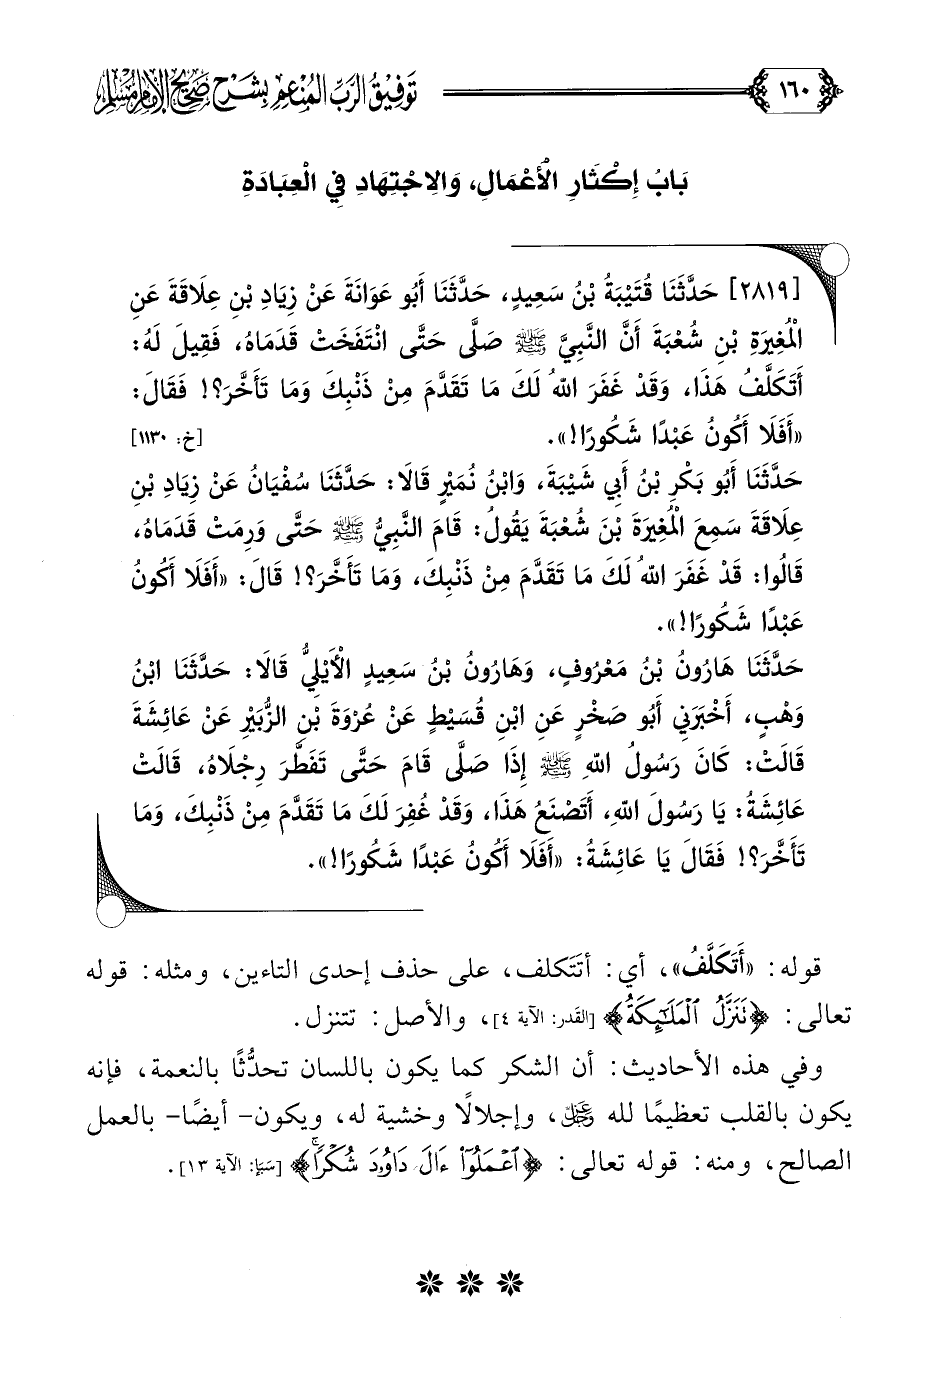 ١٦٠
توفيق الرب المنعم بشرح صحيح الإمام مسلم
بَابُ إِكْثَارِ الْأَعْمَالِ، وَالِاجْتِهَادِ فِي الْعِبَادَةِ
[٢٨١٩] حَدَّثَنَا قُتَيْبَةُ بْنُ سَعِيدٍ، حَدَّثَنَا أَبُو عَوَانَةَ عَنْ زِيَادِ بْنِ عِلَاقَةَ عَنِ
الْمُغِيرَةِ بْنِ شُعْبَةَ أَنَّ النَّبِيَّ ﷺ صَلَّى حَتَّى انْتَفَخَتْ قَدَمَاهُ، فَقِيلَ لَهُ:
أَتَكَلَّفُ هَذَا، وَقَدْ غَفَرَ اللهُ لَكَ مَا تَقَدَّمَ مِنْ ذَنْبِكَ وَمَا تَأَخَّرَ؟! فَقَالَ:
«أَفَلَا أَكُونُ عَبْدًا شَكُورًا!». [خ: ١١٣٠]
حَدَّثَنَا أَبُو بَكْرِ بْنُ أَبِي شَيْبَةَ، وَابْنُ نُمَيْرٍ قَالَا: حَدَّثَنَا سُفْيَانُ عَنْ زِيَادِ بْنِ
عِلَاقَةَ سَمِعَ الْمُغِيرَةَ بْنَ شُعْبَةَ يَقُولُ: قَامَ النَّبِيُّ ﷺ حَتَّى وَرِمَتْ قَدَمَاهُ،
قَالُوا: قَدْ غَفَرَ اللهُ لَكَ مَا تَقَدَّمَ مِنْ ذَنْبِكَ، وَمَا تَأَخَّرَ؟! قَالَ: «أَفَلَا أَكُونُ
عَبْدًا شَكُورًا!».
حَدَّثَنَا هَارُونُ بْنُ مَعْرُوفٍ، وَهَارُونُ بْنُ سَعِيدٍ الْأَيْلِيُّ قَالَا: حَدَّثَنَا ابْنُ
وَهْبٍ، أَخْبَرَنِي أَبُو صَخْرٍ عَنِ ابْنِ قُسَيْطٍ عَنْ عُرْوَةَ بْنِ الزُّبَيْرِ عَنْ عَائِشَةَ
قَالَتْ: كَانَ رَسُولُ اللهِ ﷺ إِذَا صَلَّى قَامَ حَتَّى تَفَطَّرَ رِجْلَاهُ، قَالَتْ
عَائِشَةُ: يَا رَسُولَ اللهِ، أَتَصْنَعُ هَذَا، وَقَدْ غُفِرَ لَكَ مَا تَقَدَّمَ مِنْ ذَنْبِكَ، وَمَا
تَأَخَّرَ؟! فَقَالَ يَا عَائِشَةُ: «أَفَلَا أَكُونُ عَبْدًا شَكُورًا!».
قوله: «أَتَكَلَّفُ»، أي: أتتكلف، على حذف إحدى التاءين، ومثله: قوله
تعالى: ﴿نَنَزَّلُ ٱلْمَلَٰٓئِكَةُ﴾ [القدر: الآية ٤]، والأصل: تتنزل.
وفي هذه الأحاديث: أن الشكر كما يكون باللسان تحدُّثًا بالنعمة، فإنه
يكون بالقلب تعظيمًا لله عزوجل، وإجلالًا وخشية له، ويكون- أيضًا- بالعمل
الصالح، ومنه: قوله تعالى: ﴿ٱعْمَلُوٓا۟ ءَالَ دَاوُۥدَ شُكْرًا﴾ [سَبَإ: الآية ١٣].